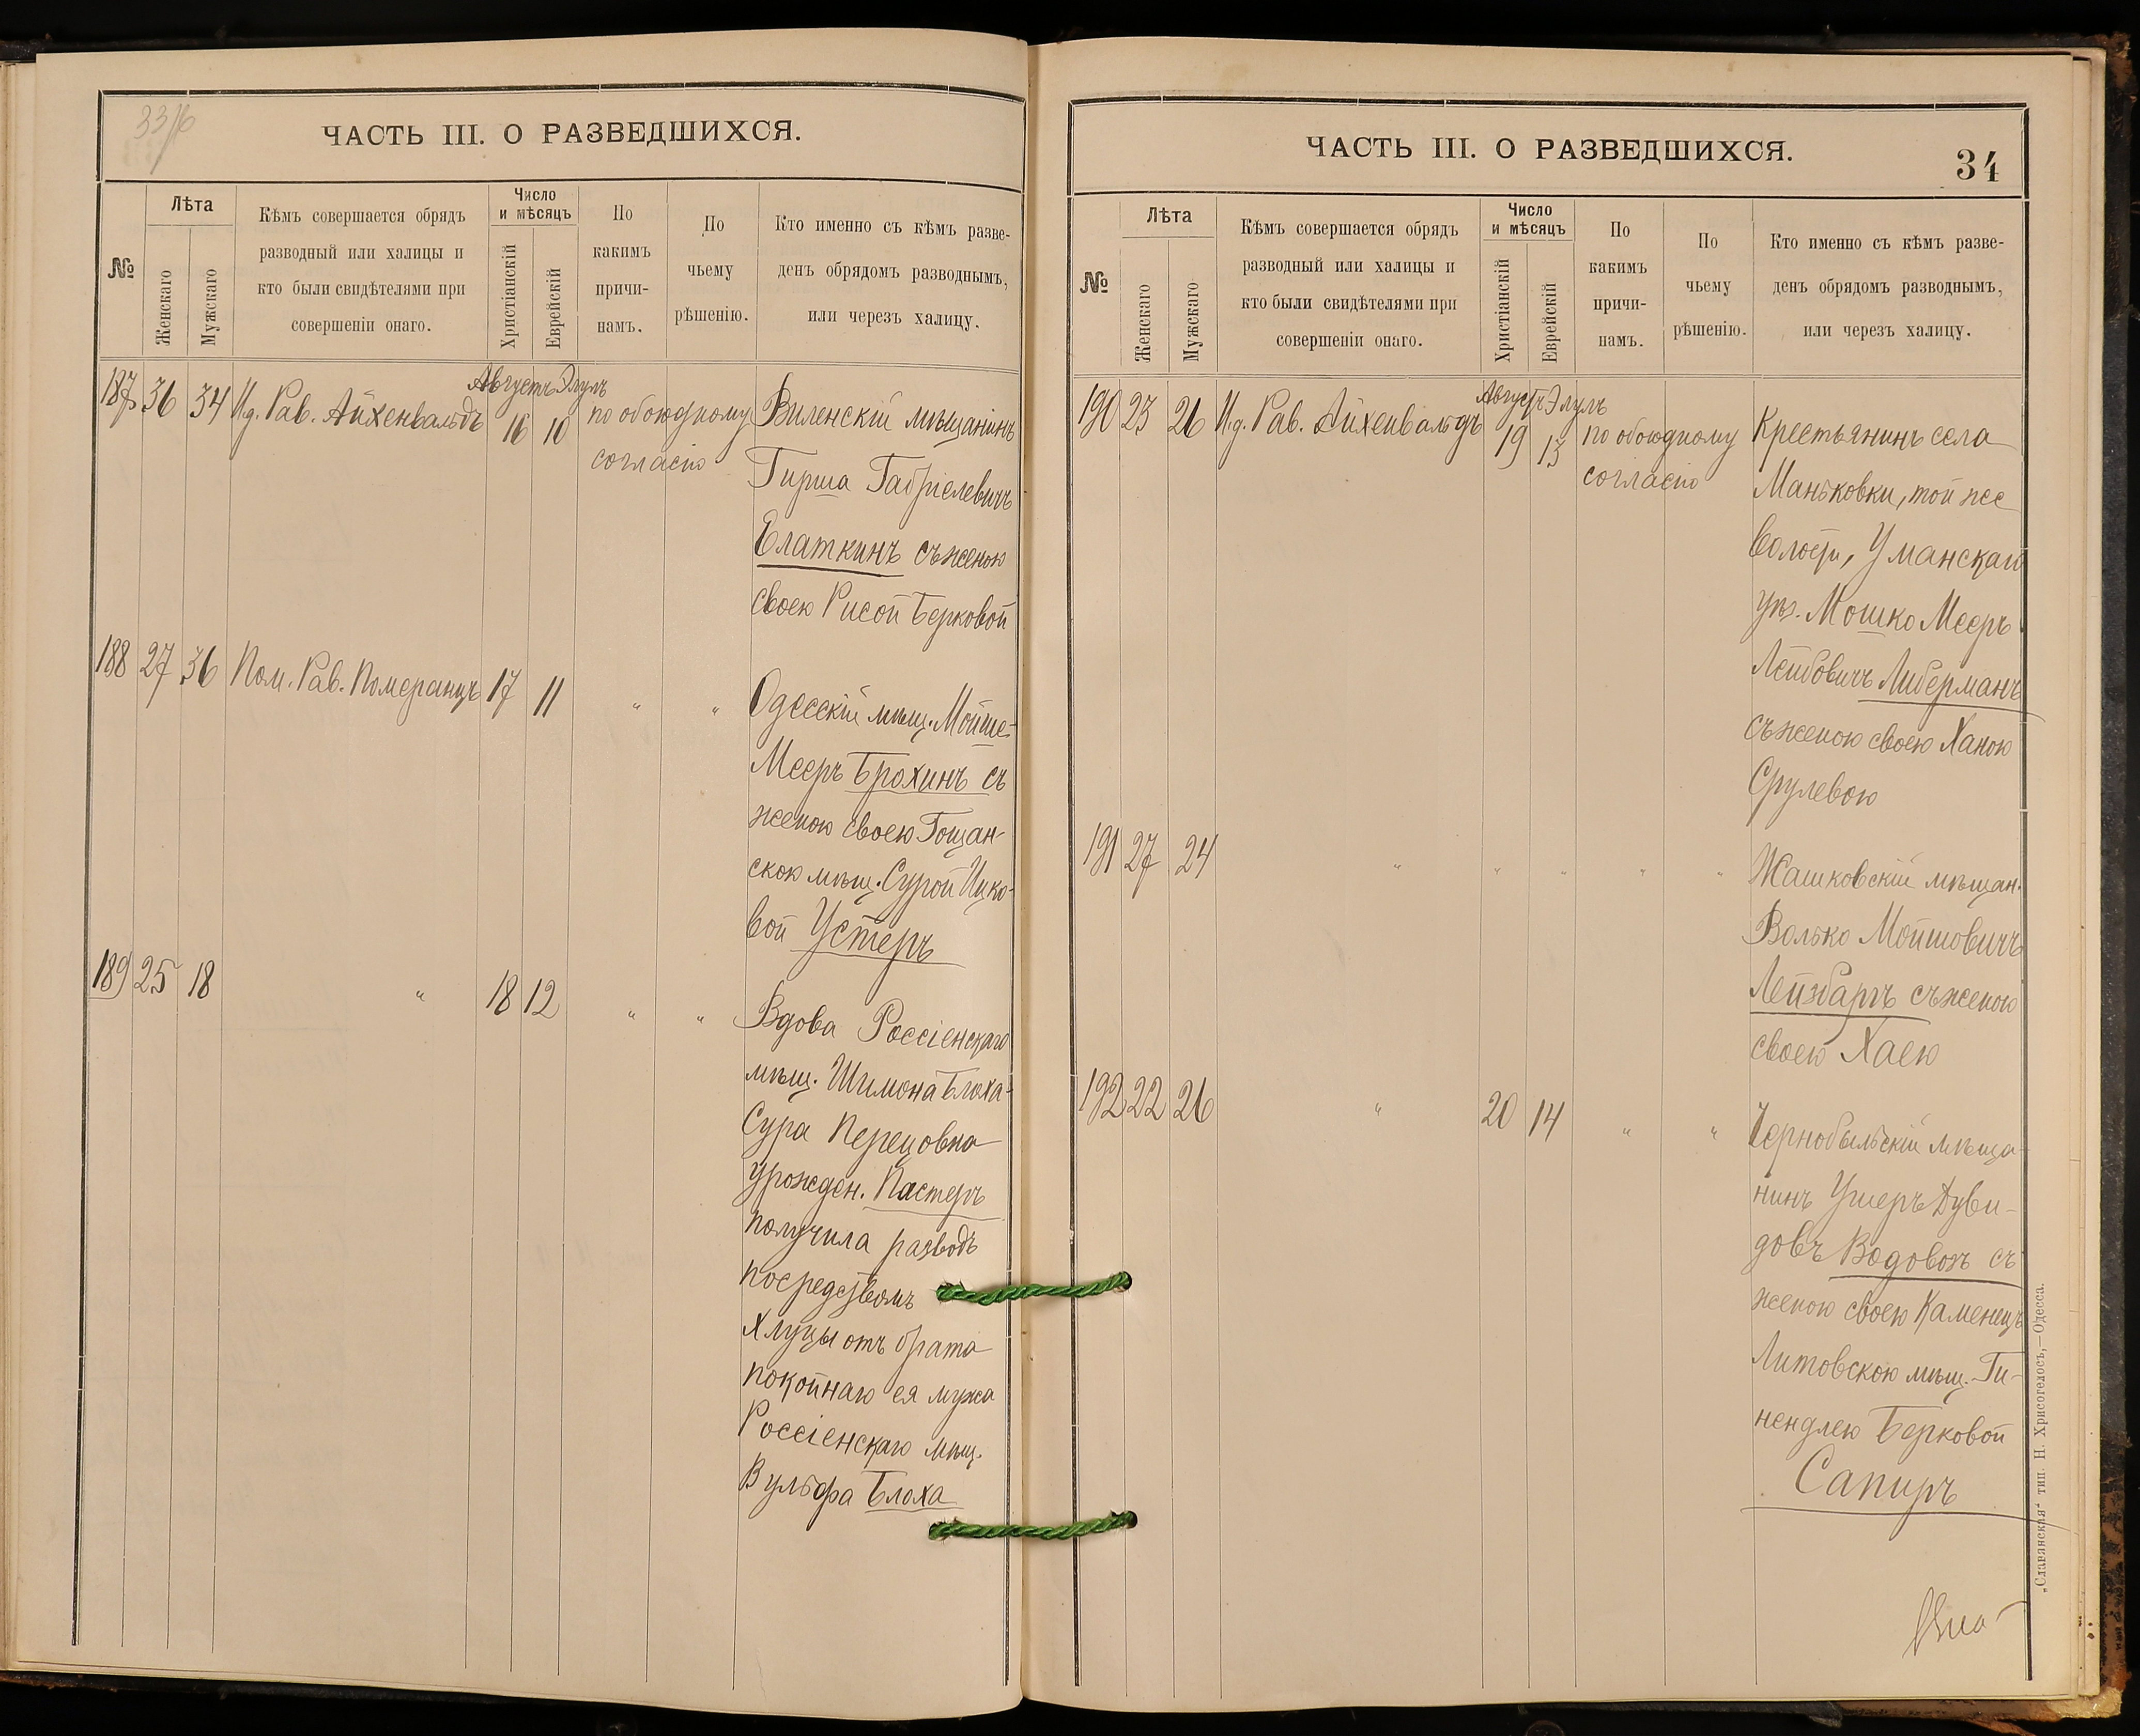 33/б
ЧАСТЬ III. О РАЗВЕДШИХСЯ.
№
Лѣта
Женскаго
Мужскаго
Кѣмъ совершается обрядъ
разводный или халицы и
кто были свидѣтелями при
совершеніи онаго.
Число
и мѣсяцъ
Христіанскій
Еврейскій
По
какимъ
причи-
намъ.
По
чьему
рѣшенію.
Кто именно съ кѣмъ разве-
денъ обрядомъ разводнымъ,
или черезъ халицу.
Августъ Элулъ
187 36 34 И.д. Рав. Айхенвальдъ 16 10 по обоюдному Виленскій мѣщанинъ
согласію
Гирша Габріелевичъ
Елаткинъ съ женою
своею Рисой Берковой
188 27 36 Пом. Рав. Померанцъ 17 11 " " Одесскій мѣщ. Мойше-
Мееръ Брохинъ съ
женою своею Гощан-
скою мѣщ. Сурой Ицко-
вой Устеръ
189 25 18 " 18 12 " " Вдова Россіенскаго
мѣщ. Шимона Блоха-
Сура Перецовна
урожден. Пастеръ
получила разводъ
посредствомъ
Хлуцы отъ брата
покойнаго ея мужа
Россіенскаго мѣщ.
Вульфа Блоха
ЧАСТЬ III. О РАЗВЕДШИХСЯ.
34
№
Лѣта
Женскаго
Мужскаго
Кѣмъ совершается обрядъ
разводный или халицы и
кто были свидѣтелями при
совершеніи онаго.
Число
и мѣсяцъ
Христіанскій
Еврейскій
По
какимъ
причи-
намъ.
По
чьему
рѣшенію.
Кто именно съ кѣмъ разве-
денъ обрядомъ разводнымъ,
или черезъ халицу.
Августъ Элулъ
190 23 26 И.д. Рав. Айхенвальдъ 19 13 по обоюдному Крестьянинъ села
согласію
Маньковки, той же
волости, Уманскаго
уѣз. Мошко Мееръ
Лейбовичъ Либерманъ
съ женою своею Ханою
Срулевою
191 27 24 " " " " " Жашковскій мѣщан.
Волько Мойшовичъ
Лейзбаргъ съ женою
своею Хаею
192 22 26 " 20 14 " " Чернобыльскій мѣща-
нинъ Ушеръ Дуви-
довъ Водовозъ съ
женою своею Каменецъ
Литовскою мѣщ. Ги-
нендлею Берковой
Сапиръ
„Славянская" тип. Н. Хрисогелосъ,—Одесса.